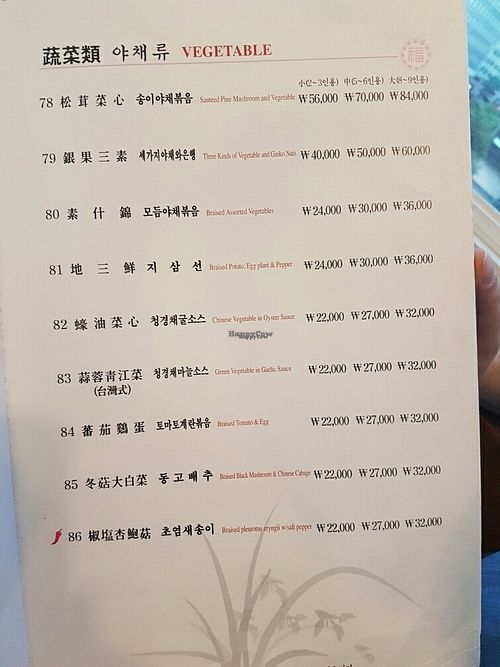 蔬菜類 야채류 VEGETABLE 福
小(2~3인용) 中(5~6인용) 大(8~9인용)
78 松茸菜心 송이야채볶음 Sauteed Pine Mushroom and Vegetable ₩56,000 ₩70,000 ₩84,000
79 銀果三素 세가지야채와은행 Three Kinds of Vegetable and Ginko Nuts ₩40,000 ₩50,000 ₩60,000
80 素什錦 모듬야채볶음 Braised Assorted Vegetables ₩24,000 ₩30,000 ₩36,000
81 地三鮮 지삼선 Braised Potato, Egg plant & Pepper ₩24,000 ₩30,000 ₩36,000
82 蠔油菜心 청경채굴소스 Chinese Vegetable in Oyster Sauce ₩22,000 ₩27,000 ₩32,000
HappyCow
83 蒜蓉靑江菜 청경채마늘소스 Green Vegetable in Garlic Sauce ₩22,000 ₩27,000 ₩32,000
(台灣式)
84 蕃茄鷄蛋 토마토계란볶음 Braised Tomato & Egg ₩22,000 ₩27,000 ₩32,000
85 冬菇大白菜 동고배추 Braised Black Mushroom & Chinese Cabage ₩22,000 ₩27,000 ₩32,000
86 椒塩杏鮑菇 초염새송이 Braised pleurotus eryngii w/salt pepper ₩22,000 ₩27,000 ₩32,000